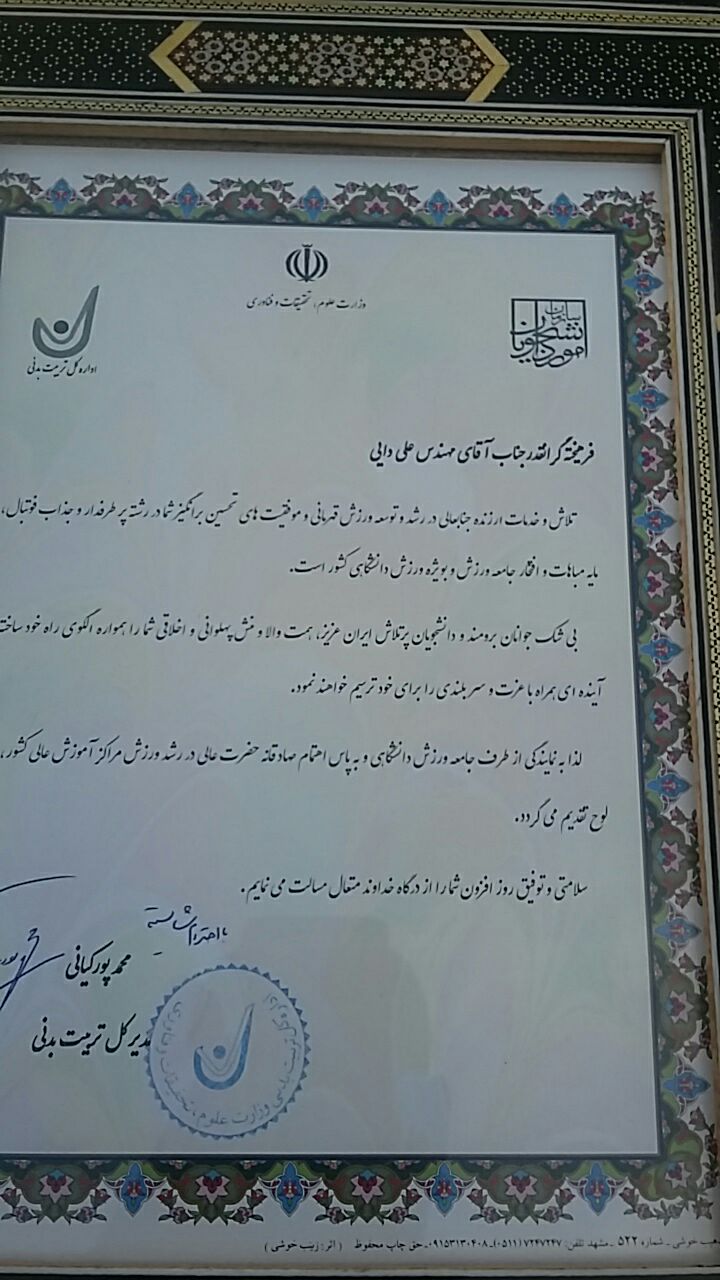 وزارت علوم، تحقیقات و فناوری
سازمان
امور دانشجویان
اداره کل تربیت بدنی
فرهیخته گرانقدر جناب آقای مهندس علی دایی
تلاش و خدمات ارزنده جنابعالی در رشد و توسعه ورزش قهرمانی و موفقیت های تحسین برانگیز شما در رشته پر طرفدار و جذاب فوتبال،
مایه مباهات و افتخار جامعه ورزش و بویژه ورزش دانشگاهی کشور است.
بی شک جوانان برومند و دانشجویان پرتلاش ایران عزیز، همت والا و منش پهلوانی و اخلاقی شما را همواره الگوی راه خود ساخته
آینده ای همراه با عزت و سربلندی را برای خود ترسیم خواهند نمود.
لذا به نمایندگی از طرف جامعه ورزش دانشگاهی و به پاس اهتمام صادقانه حضرت عالی در رشد ورزش مراکز آموزش عالی کشور،
لوح تقدیم می گردد.
سلامتی و توفیق روز افزون شما را از درگاه خداوند متعال مسالت می نمایم.
با احترام شایسته
محمد پورکیانی
مدیر کل تربیت بدنی
اداره کل تربیت بدنی وزارت علوم، تحقیقات و فناوری
خوشی - شماره ۵۲۲ - مشهد تلفن: ۷۲۴۷۲۴۷ (۰۵۱۱) - ۰۹۱۵۳۱۳۰۴۰۸ - حق چاپ محفوظ (اثر: زینب خوشی)